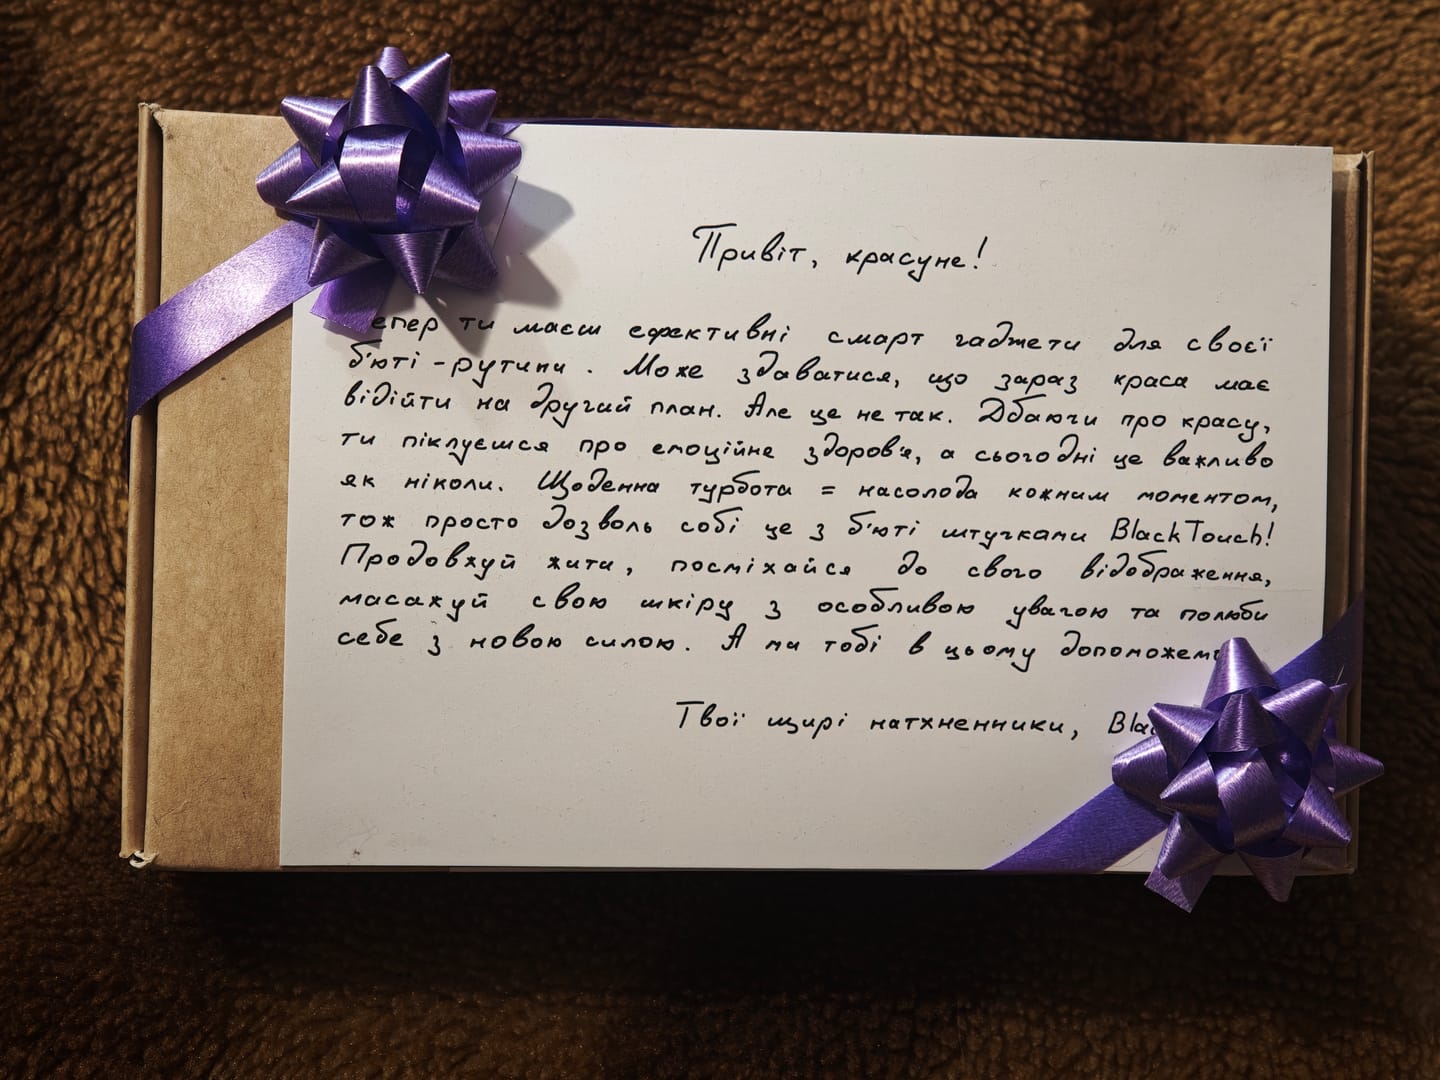 Привіт, красуне!
епер ти маєш ефективні смарт гаджети для своєї
б'юті-рутини. Може здаватися, що зараз краса має
відійти на другий план. Але це не так. Дбаючи про красу,
ти піклуєшся про емоційне здоров'я, а сьогодні це важливо
як ніколи. Щоденна турбота = насолода кожним моментом,
тож просто дозволь собі це з б'юті штучками BlackTouch!
Продовжуй жити, посміхайся до свого відображення,
масажуй свою шкіру з особливою увагою та полюби
себе з новою силою. А ми тобі в цьому допоможем
Твої щирі натхненники,